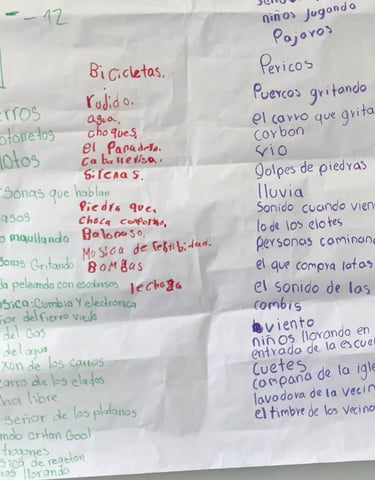 - - 12
erros
otonetos
lotos
sonas que hablan
asos
o maquillando
sonas Gritando
da peleando con escobasos
sica: Cumbia y electronica
ñor del fierro viejo
del Gas
del agua
xon de los carros
carro de los elados
libre
señor de los platanos
ando critan Goal
sica de regeton
ros llorando
Bicicletas.
rodido.
agua.
choques.
el Panadero.
Sirenas.
Piedra que
choca
Balonaso.
Mosica de
BOMBAS
lechoga
ninos jugando
Pajaros
Pericos
Puercos gritando
el carro que grita
carbon
rio
Golpes de piedras
lluvia
Sonido cuando vien
lo de los elotes
personas caminan
el que compra latas
el sonido de las
combis
viento
niños llorando en
entrada de la escue
Cuetes
campana de la igle
lavadora de la vecin
el timbre de los vecino